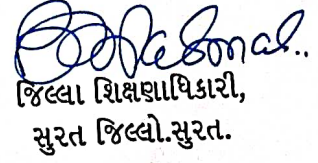 જિલ્લા શિક્ષણાધિકારી,
સુરત જિલ્લો.સુરત.